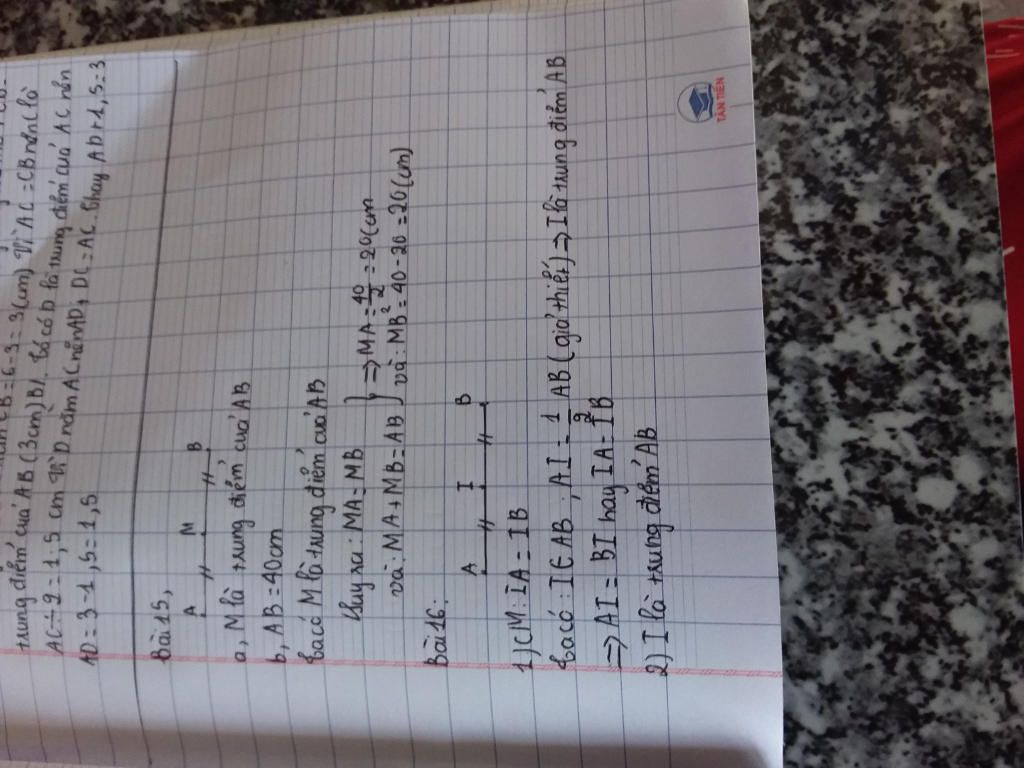 trung điểm của AB (3cm) B/. Ta có D là trung điểm của AC nên
AC÷2=1,5 cm Vì D nằm AC nên AD+DC=AC. Thay AD+1,5=3
AD=3-1,5=1,5
Bài 15,
A M B
a, M là trung điểm của AB
b, AB=40cm
Ta có M là trung điểm của AB
Suy ra: MA=MB
và: MA+MB=AB
=> MA=40/2=20(cm
và: MB=40-20=20(cm)
Bài 16:
A I B
1) CM: IA=IB
Ta có: I∈AB; AI=1/2 AB (giả thiết) => I là trung điểm AB
=> AI=BI hay IA=IB
2) I là trung điểm AB
TÂN TIẾN